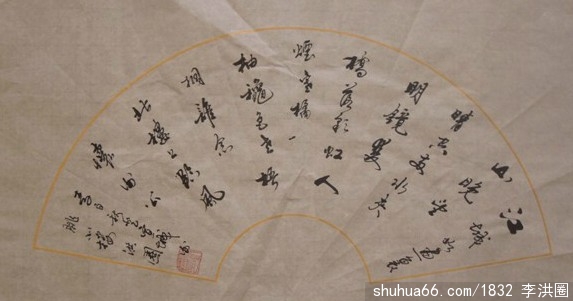 江城如画里
山晚望
晴空两水夹
明镜双
桥落彩虹人
烟寒橘
柚龝色老梧
桐谁念
北楼上临风
怀谢公
李白秋登宣城谢
朓北楼 洪圈
shuhua66.com/1832 李洪圈